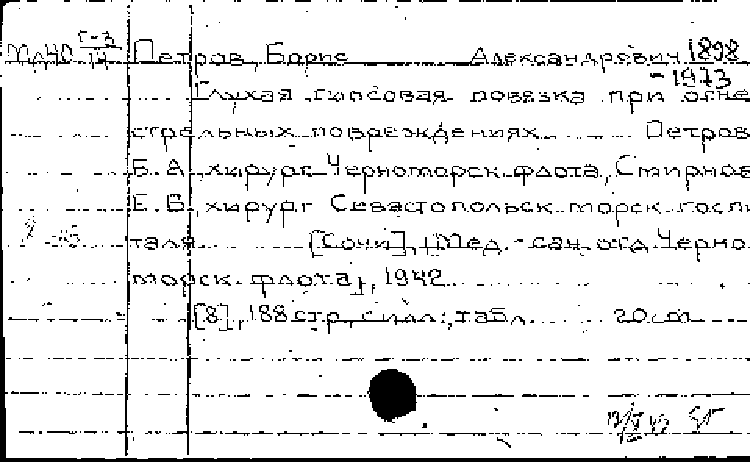 Петров, Борис Александрович 1898
-1973
Глухая гипсовая повязка при огне
стрельных повреждениях Петров
Б.А. хирург Черноморск. флота, Смирнов
Е.В. хирург Севастопольск. морск. госпи
таля [Сочи], [Мед.-сан. отд. Черно
морск. флота], 1942
[8], 188 стр., с илл.; табл. 20 см